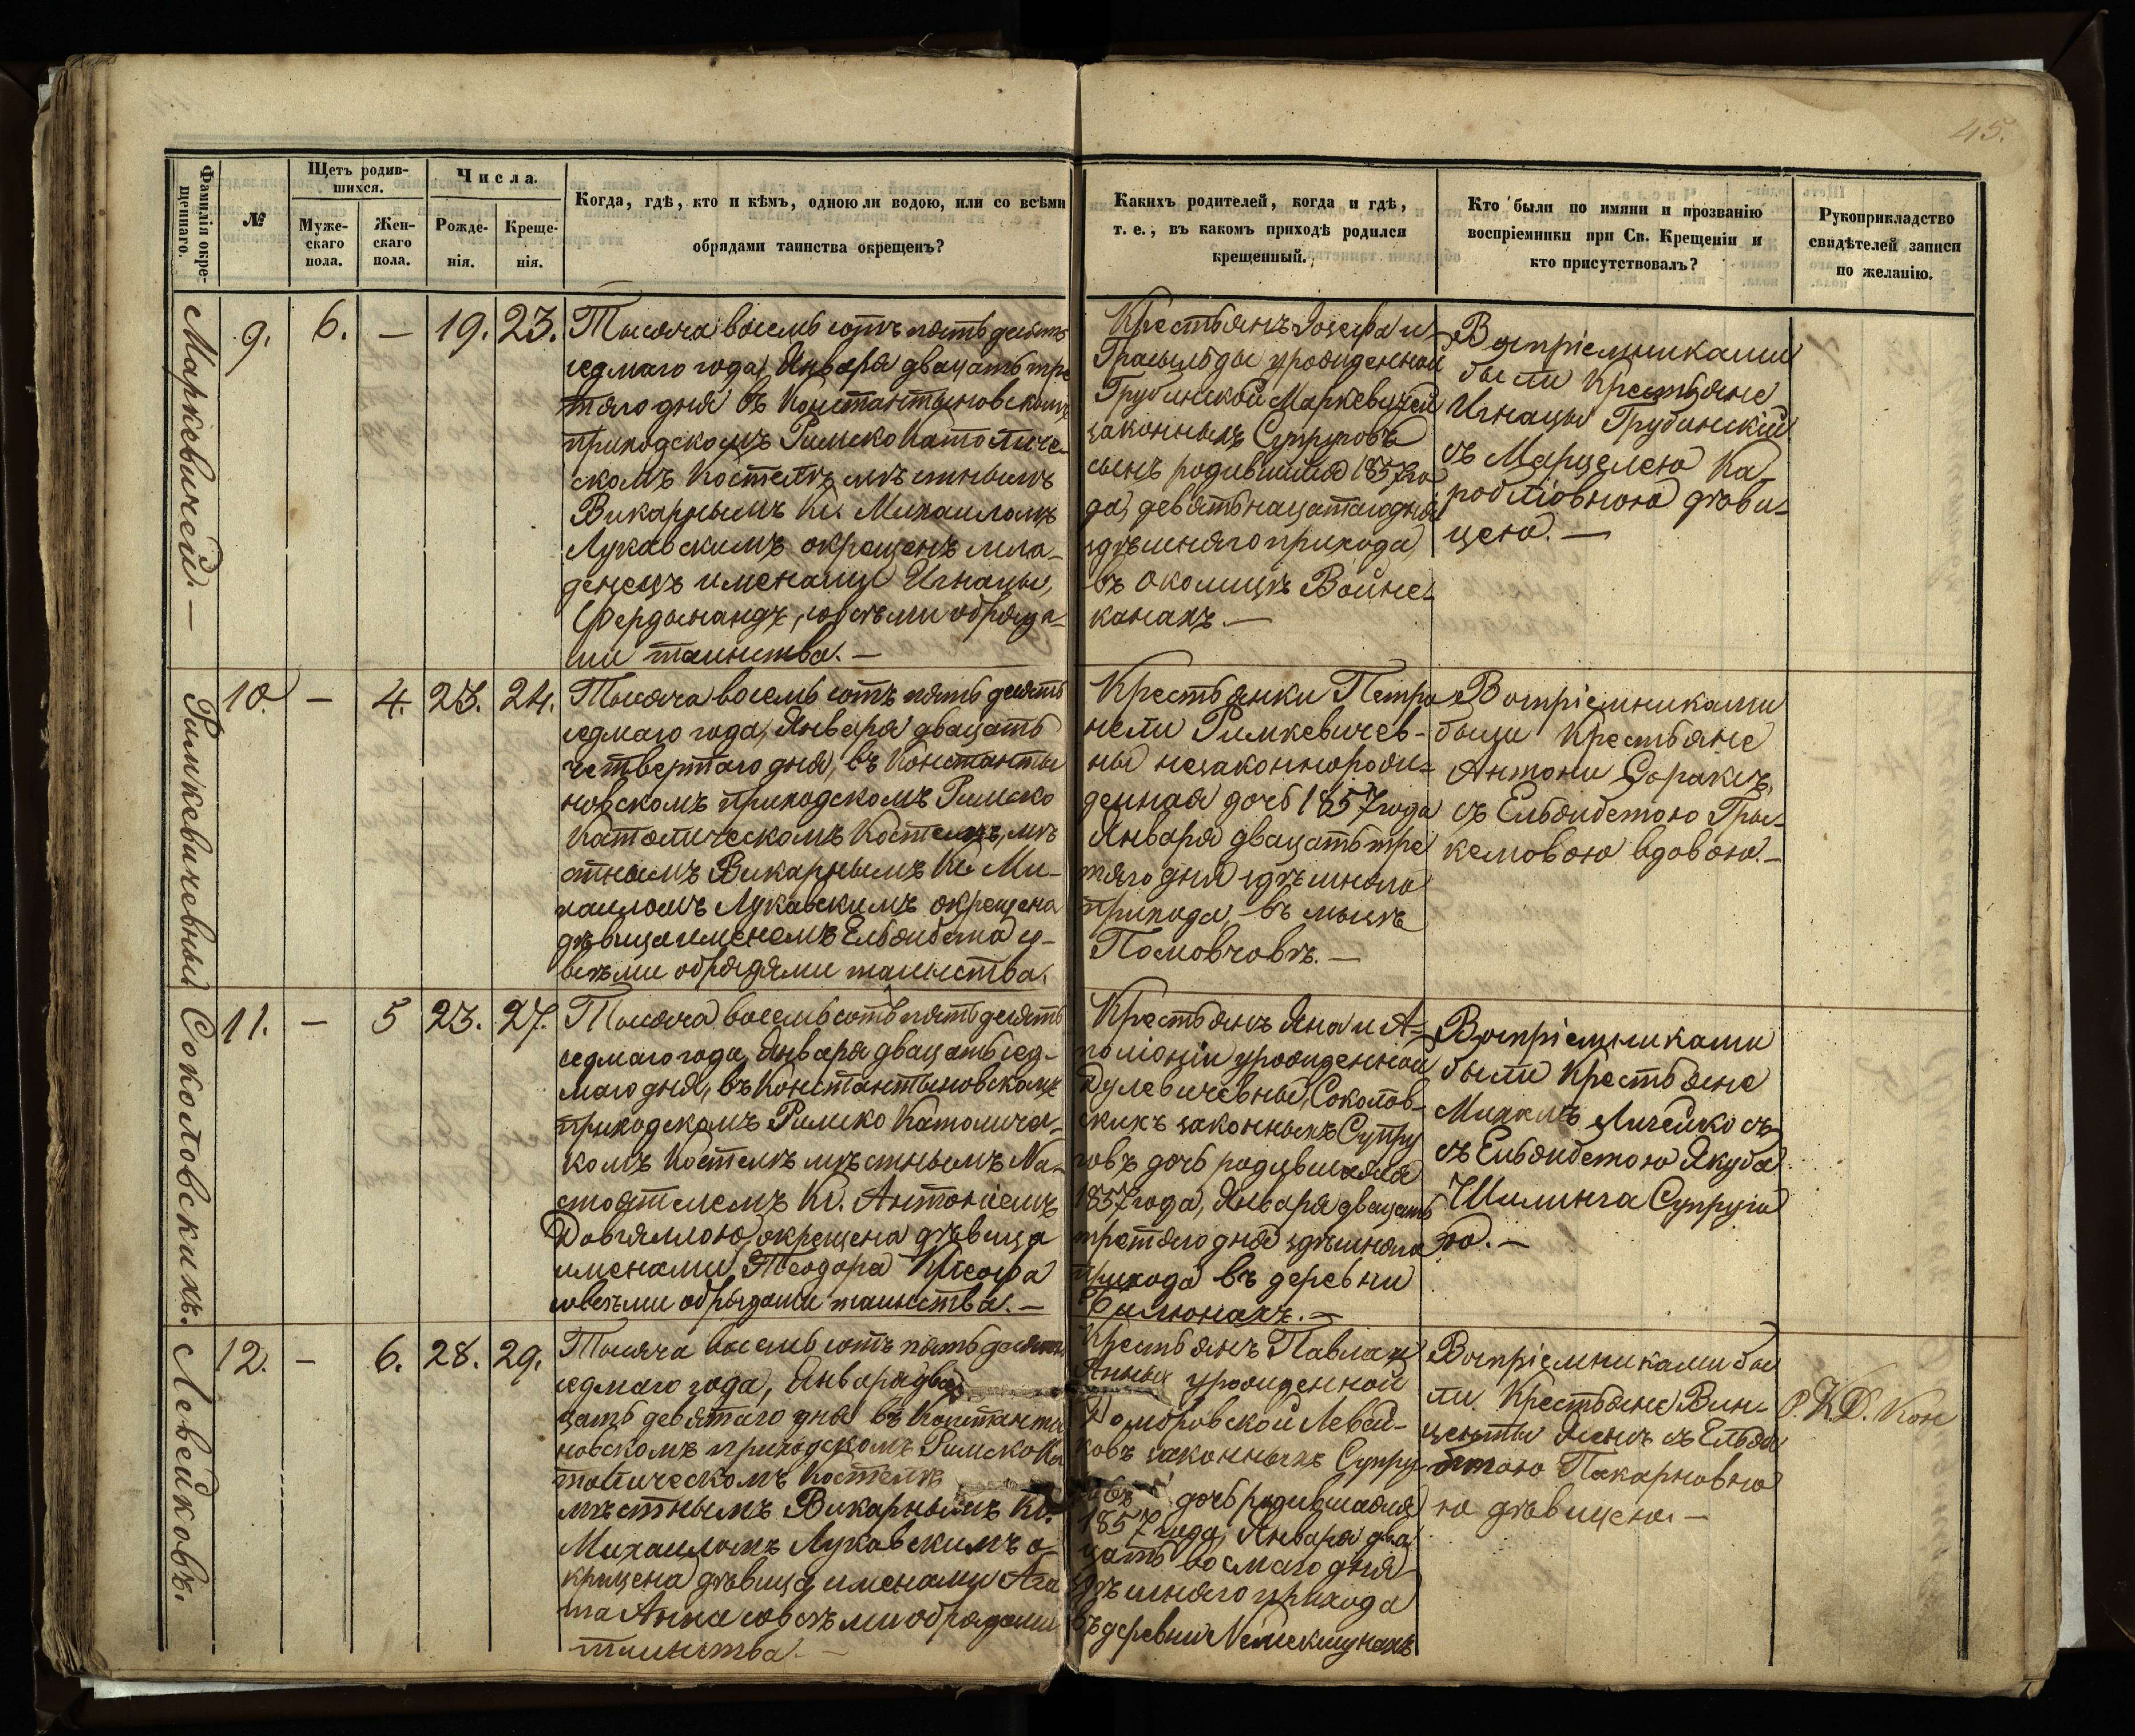 45.
Фамилія окре-
щеннаго.
№
Щетъ родив-
шихся.
Муже-
скаго
пола.
Жен-
скаго
пола.
Числа.
Рожде-
нія.
Креще-
нія.
Когда, гдѣ, кто и кѣмъ, одною ли водою, или со всѣми
обрядами таинства окрещенъ?
Какихъ родителей, когда и гдѣ,
т. е., въ какомъ приходѣ родился
крещенный.
Кто были по имяни и прозванію
воспріемники при Св. Крещеніи и
кто присутствовалъ?
Рукоприкладство
свидѣтелей записи
по желанію.
Маркевичей. —
9.
6.
—
19.
23.
Тысяча восемь сотъ пять десять
седмаго года, Января двацать тре
тяго дня въ Константыновскомъ
приходскомъ Римско Католиче-
скомъ Костелѣ мѣстнымъ
Викарнымъ Кс. Михаиломъ
Лукавскимъ окрещенъ мла-
денецъ именами Игнацы,
Фердынандъ, со всѣми обряда-
ми таинства. —
Крестьянъ Іозефа и
урожденной
Грубинской Маркевичей
законныхъ Супруговъ
сынъ родившійся 1857 го
да, девятьнацатаго дня
здѣшняго прихода
въ околицѣ Войне-
канахъ. —
Воспріемниками
были Крестьяне
Игнацы Грубинскій
съ Марцелею Ка
дѣви-
цею. —
Римкевичевны
10.
—
4.
23.
24.
Тысяча восемь сотъ пять десять
седмаго года, Января двацать
четвертаго дня, въ Константы
новскомъ приходскомъ Римско
Католическомъ Костелѣ, мѣ
стнымъ Викарнымъ Кс. Ми-
хаиломъ Лукавскимъ окрещена
дѣвица именемъ Ельжбета с-
всѣми обрядами таинства.
Крестьянки Петро
нели Римкевичев-
ны незаконнорож-
денная дочь 1857 года
Января двацать тре
тяго дня здѣшняго
прихода, въ
Воспріемниками
были Крестьяне
Антони
съ Ельжбетою Гры-
кемовою вдовою. —
Соколовскихъ.
11.
—
5
23.
27.
Тысяча восемь сотъ пять десять
седмаго года, Января двацать сед-
маго дня, въ Константыновскомъ
приходскомъ Римско Католичес-
комъ Костелѣ мѣстнымъ На-
стоятелемъ Кс. Антоніемъ
Довгялло окрещена дѣвица
именами Теодора
со всѣми обрядами таинства. —
Крестьянъ Яна и А-
полоніи урожденной
Дулевичевны, Соколов-
скихъ законныхъ Супру
говъ дочь родившаяся
1857 года, Января двацать
третяго дня здѣшняго
прихода въ деревни
Воспріемниками
были Крестьяне
Михалъ съ
съ Ельжбетою Якуба
Шилинга Супруго
ю. —
Левейковъ.
12.
—
6.
28.
29.
Тысяча восемь сотъ пять десять
седмаго года, Января два
цать девятаго дня въ Константы
новскомъ приходскомъ Римско Ка
толическомъ Костелѣ
мѣстнымъ Викарнымъ Кс.
Михаиломъ Лукавскимъ о-
крещена дѣвица именами Ага
та Анна со всѣми обрядами
таинства. —
Крестьянъ Павла и
Анны урожденной
Домбровской Левей-
ковъ законныхъ Супру
говъ дочь родившаяся
1857 года, Января два
цать восмаго дня
здѣшняго прихода
въ деревни
Воспріемниками бы
ли Крестьяне Вин-
центы съ Ельжбе
тою
ю дѣвицею. —